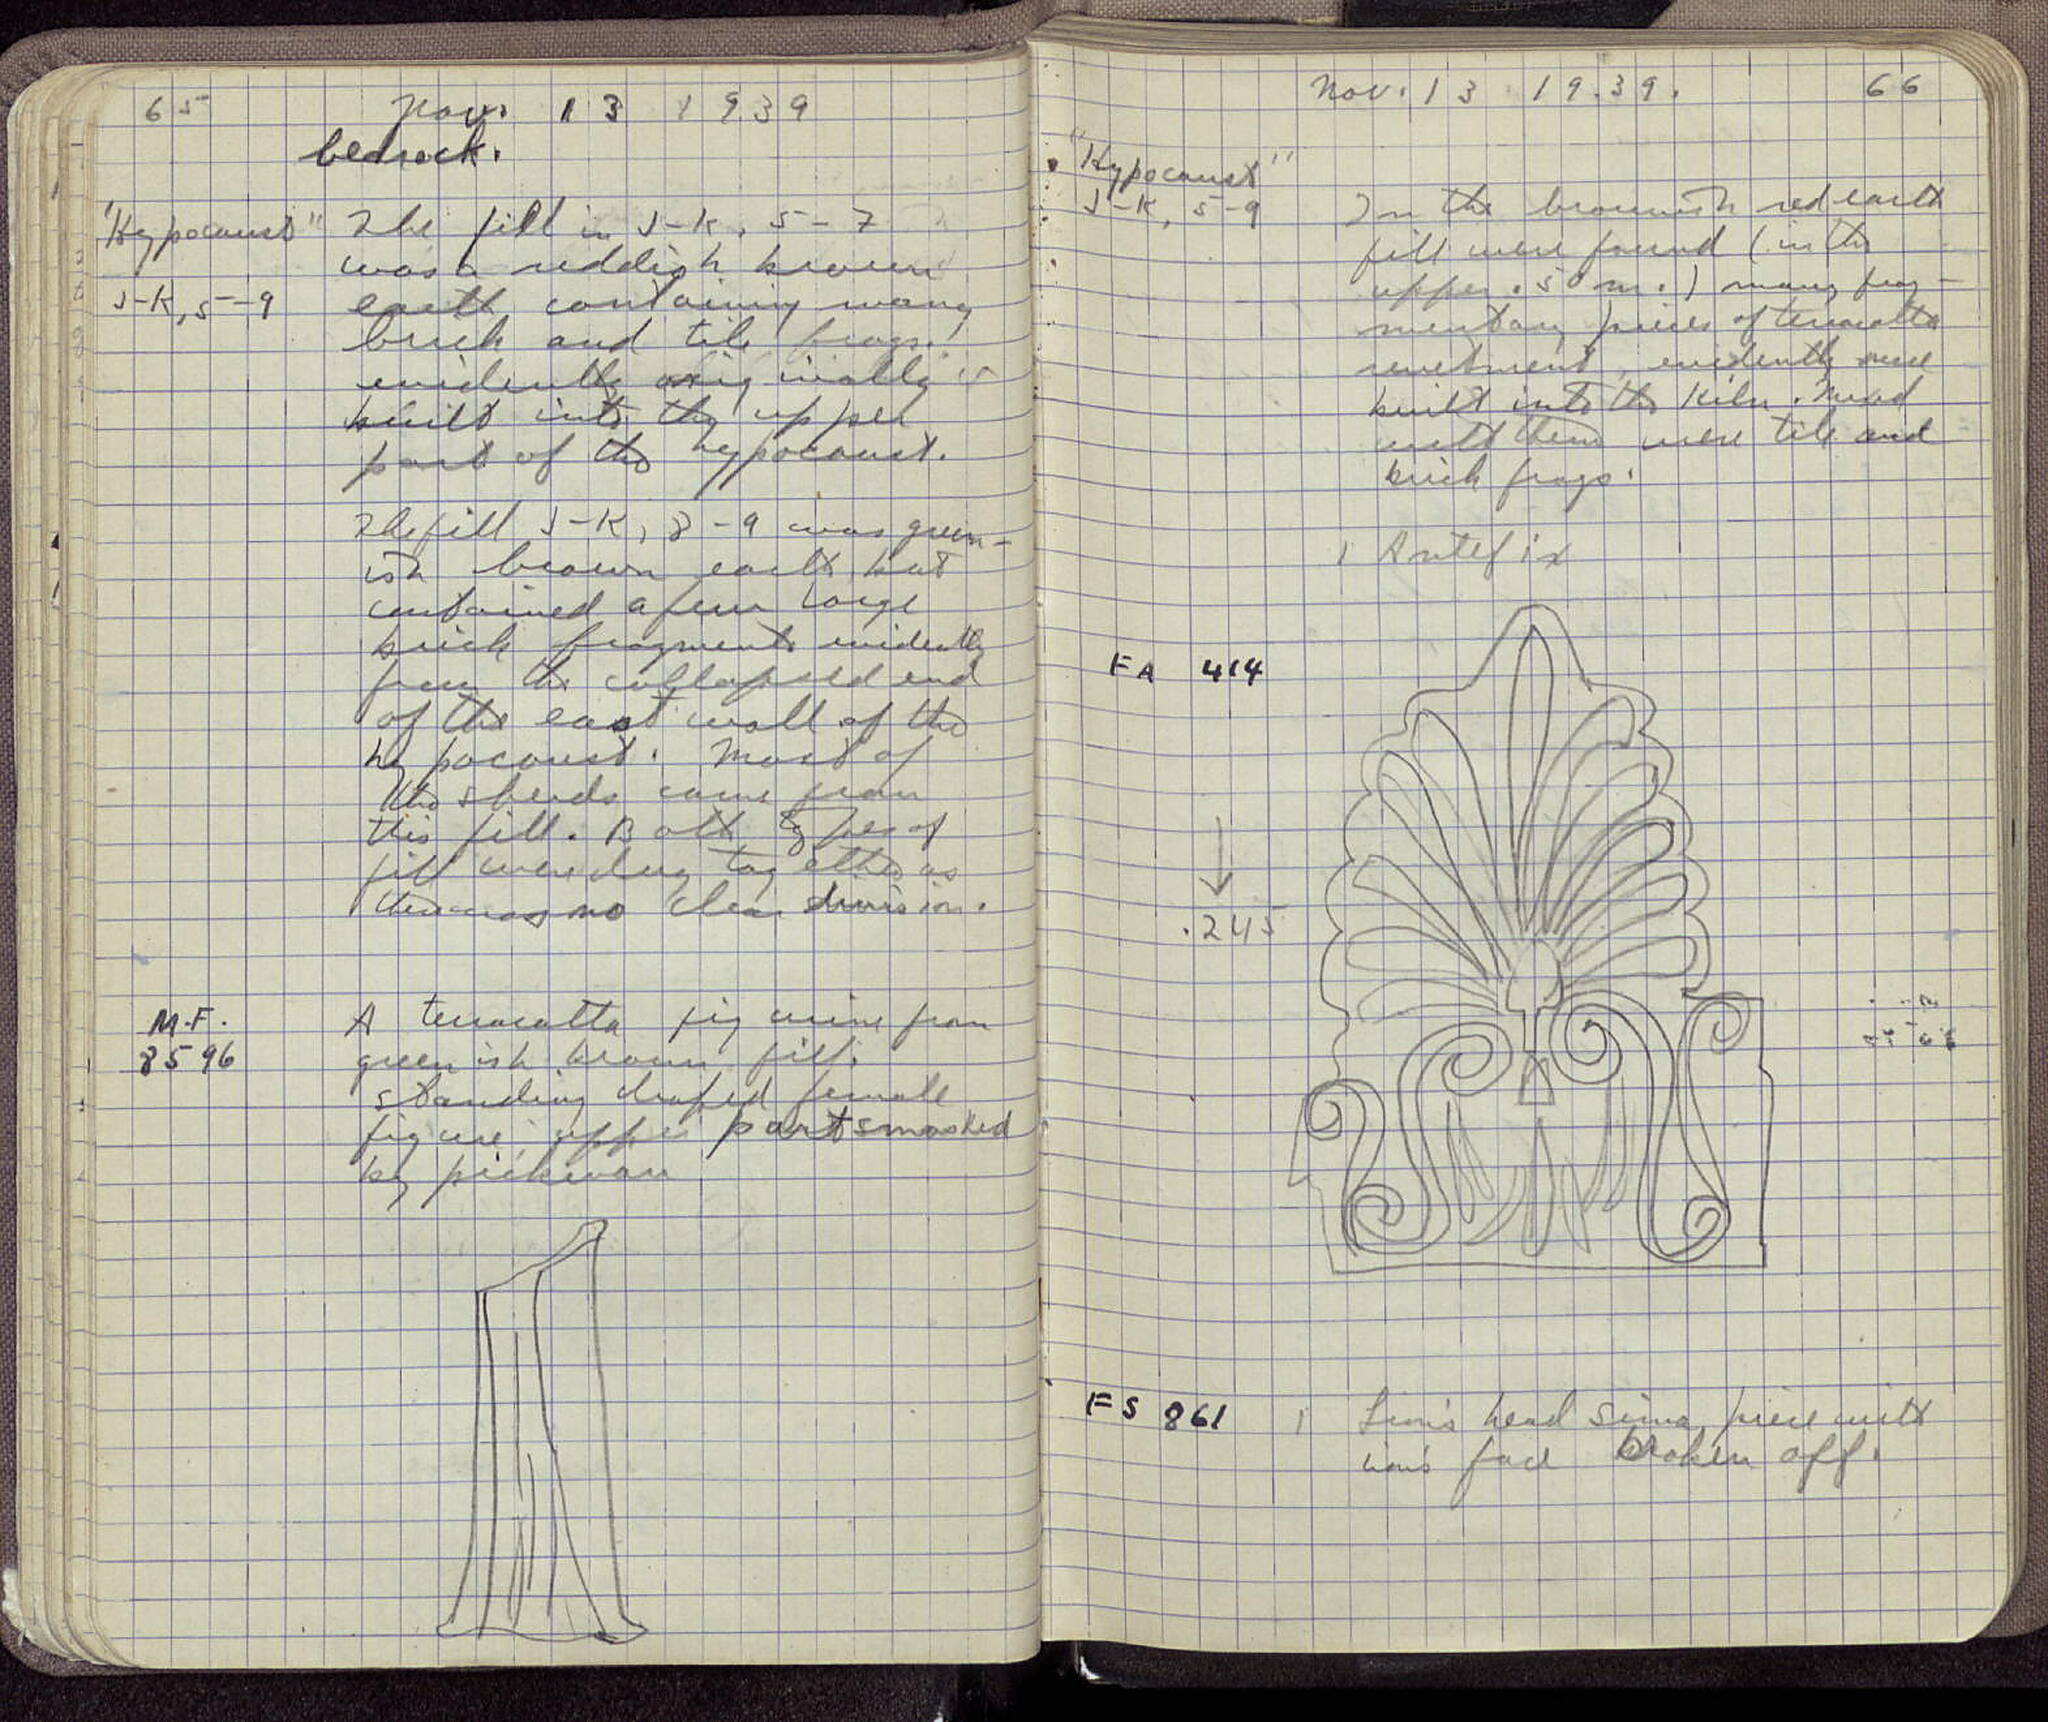 65 Nov. 13 1939
bedrock.
"Hypocaust"
J-K, 5-9
The fill in J-K, 5-7
was a reddish brown
earth containing many
brick and tile frags.
evidently originally
built into the upper
part of the hypocaust.
The fill J-K, 8-9 was green-
ish brown earth but
contained a few large
brick fragments evidently
from the collapsed end
of the east wall of the
hypocaust. Most of
the sherds came from
this fill. Both types of
fill were dug together as
there was no clear division.
M.F.
8596
A terracotta figurine from
greenish brown fill.
standing draped female
figure, upper part smashed
by pickman
Nov. 13 19.39. 66
"Hypocaust"
J-K, 5-9
In the brownish red earth
fill were found (in the
upper .50 m.) many frag-
mentary pieces of terracotta
revetment, evidently once
built into the kiln. Mixed
with them were tile and
brick frags.
1 Antefix
FA 414
.245
FS 861
1 Lion's head sima piece with
lion's face broken off.